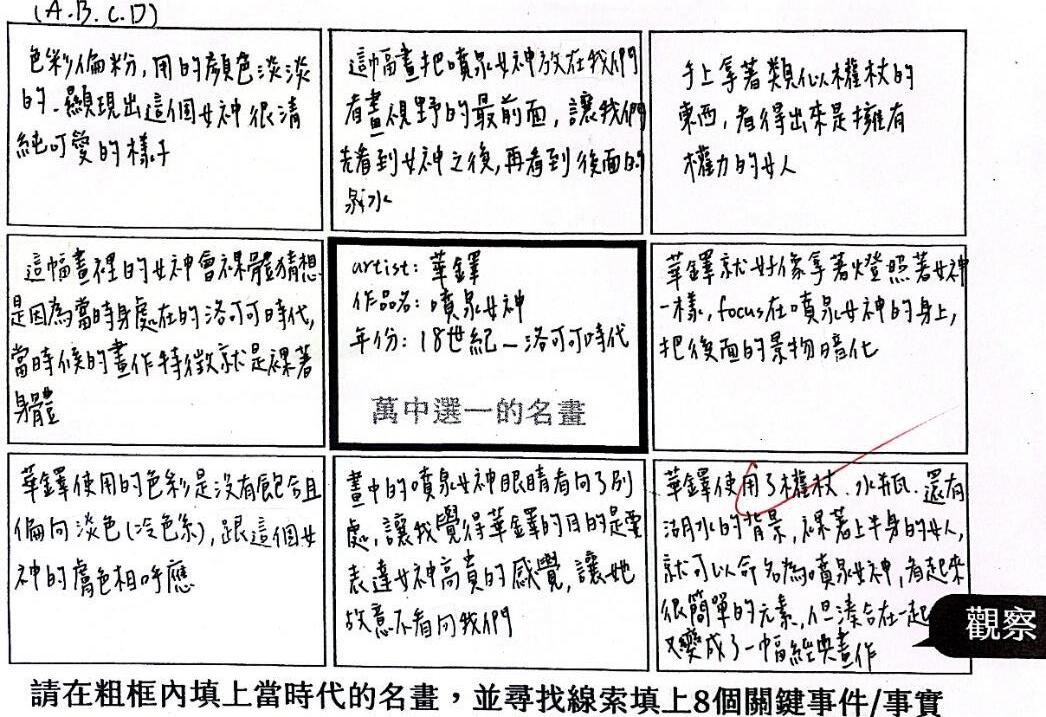 (A.B.C.D)
色彩偏粉,用的顏色淡淡
的_顯現出這個女神很清
純可愛的樣子
這幅畫把噴泉女神放在我們
看畫視野的最前面,讓我們
先看到女神之後,再看到後面的
泉水
手上拿著類似權杖的
東西,看得出來是擁有
權力的女人
這幅畫裡的女神會裸體猜想
是因為當時身處在的洛可可時代,
當時候的畫作特徵就是裸著
身體
artist: 華鐸
作品名: 噴泉女神
年份: 18世紀_洛可可時代
萬中選一的名畫
華鐸就好像拿著燈照著女神
一樣,focus在噴泉女神的身上,
把後面的景物暗化
華鐸使用的色彩是沒有飽合且
偏向淡色(冷色系),跟這個女
神的膚色相呼應
畫中的噴泉女神眼睛看向了別
處,讓我覺得華鐸的目的是要
表達女神高貴的感覺,讓她
故意不看向我們
華鐸使用了權杖、水瓶、還有
湖水的背景,裸著上半身的女人,
就可以命名為噴泉女神,看起來
很簡單的元素,但湊合在一起
又變成了一幅經典畫作
觀察
請在粗框內填上當時代的名畫,並尋找線索填上8個關鍵事件/事實